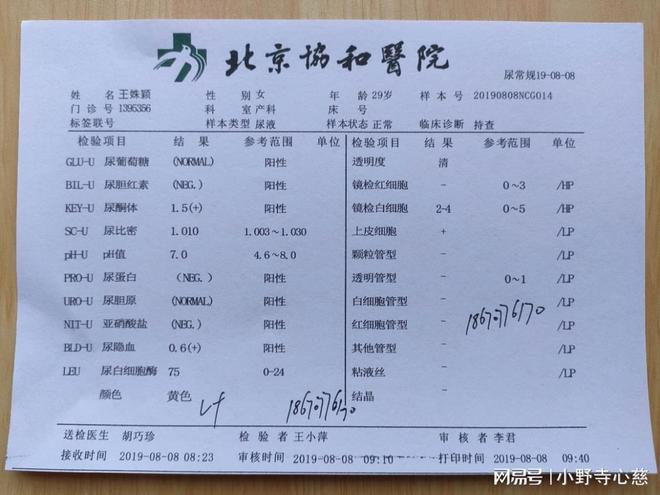 北京協和醫院
尿常规19-08-08
姓 名 王姝颖 性 别 女 年 龄 29岁 样 本 号 20190808NCG014
门 诊 号 1395356 科 室 产科 床 号
标签联号 样本类型 尿液 样本状态 正常 临床诊断 待查
检验项目 结 果 参考范围 单位 检验项目 结 果 参考范围 单位
GLU-U 尿葡萄糖 (NORMAL) 阳性 透明度 清
BIL-U 尿胆红素 (NEG.) 阳性 镜检红细胞 - 0~3 /HP
KEY-U 尿酮体 1.5(+) 阳性 镜检白细胞 2-4 0~5 /HP
SC-U 尿比密 1.010 1.003~1.030 上皮细胞 + /LP
pH-U pH值 7.0 4.6~8.0 颗粒管型 - /LP
PRO-U 尿蛋白 (NEG.) 阳性 透明管型 - 0~1 /LP
URO-U 尿胆原 (NORMAL) 阳性 白细胞管型 - /LP
NIT-U 亚硝酸盐 (NEG.) 阳性 红细胞管型 - 18670776170 /LP
BLD-U 尿隐血 0.6(+) 阳性 其他管型 - /LP
LEU 尿白细胞酶 75 0-24 粘液丝 - /LP
颜色 黄色 18670776170 结晶 -
送检医生 胡巧珍 检 验 者 王小萍 审 核 者 李君
接收时间 2019-08-08 08:23 审核时间 2019-08-08 09:10 打印时间 2019-08-08 09:40
网易号 | 小野寺心慈